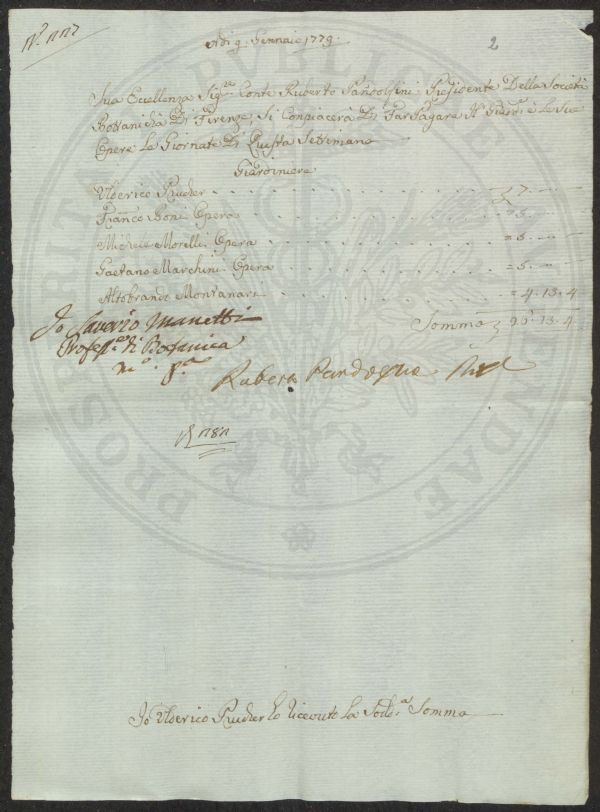 Adi 9. Gennaio 1779.
2
Sua Eccellenza Sig.re Conte Ruberto Pandolfini Presidente Della Società
Bottanicha Di Firenze, Si Conpiacerà Di Far Pagare Al e Le Sue
Opere Le Giornate Di Questa Settimana
Giardiniere
Ulderico Prucher
Franco Boni Opera
Michele Morelli Opera
Gaetano Marchini Opera
Altobrando Montanari = 4. 13. 4
Somma 13. 4
Io Saverio Manetti
Profess.e di Botanica
m.o p.a
Ruberto Pandolfini
Io Ulderico Prucher ho riceuto La Sod.a Somma